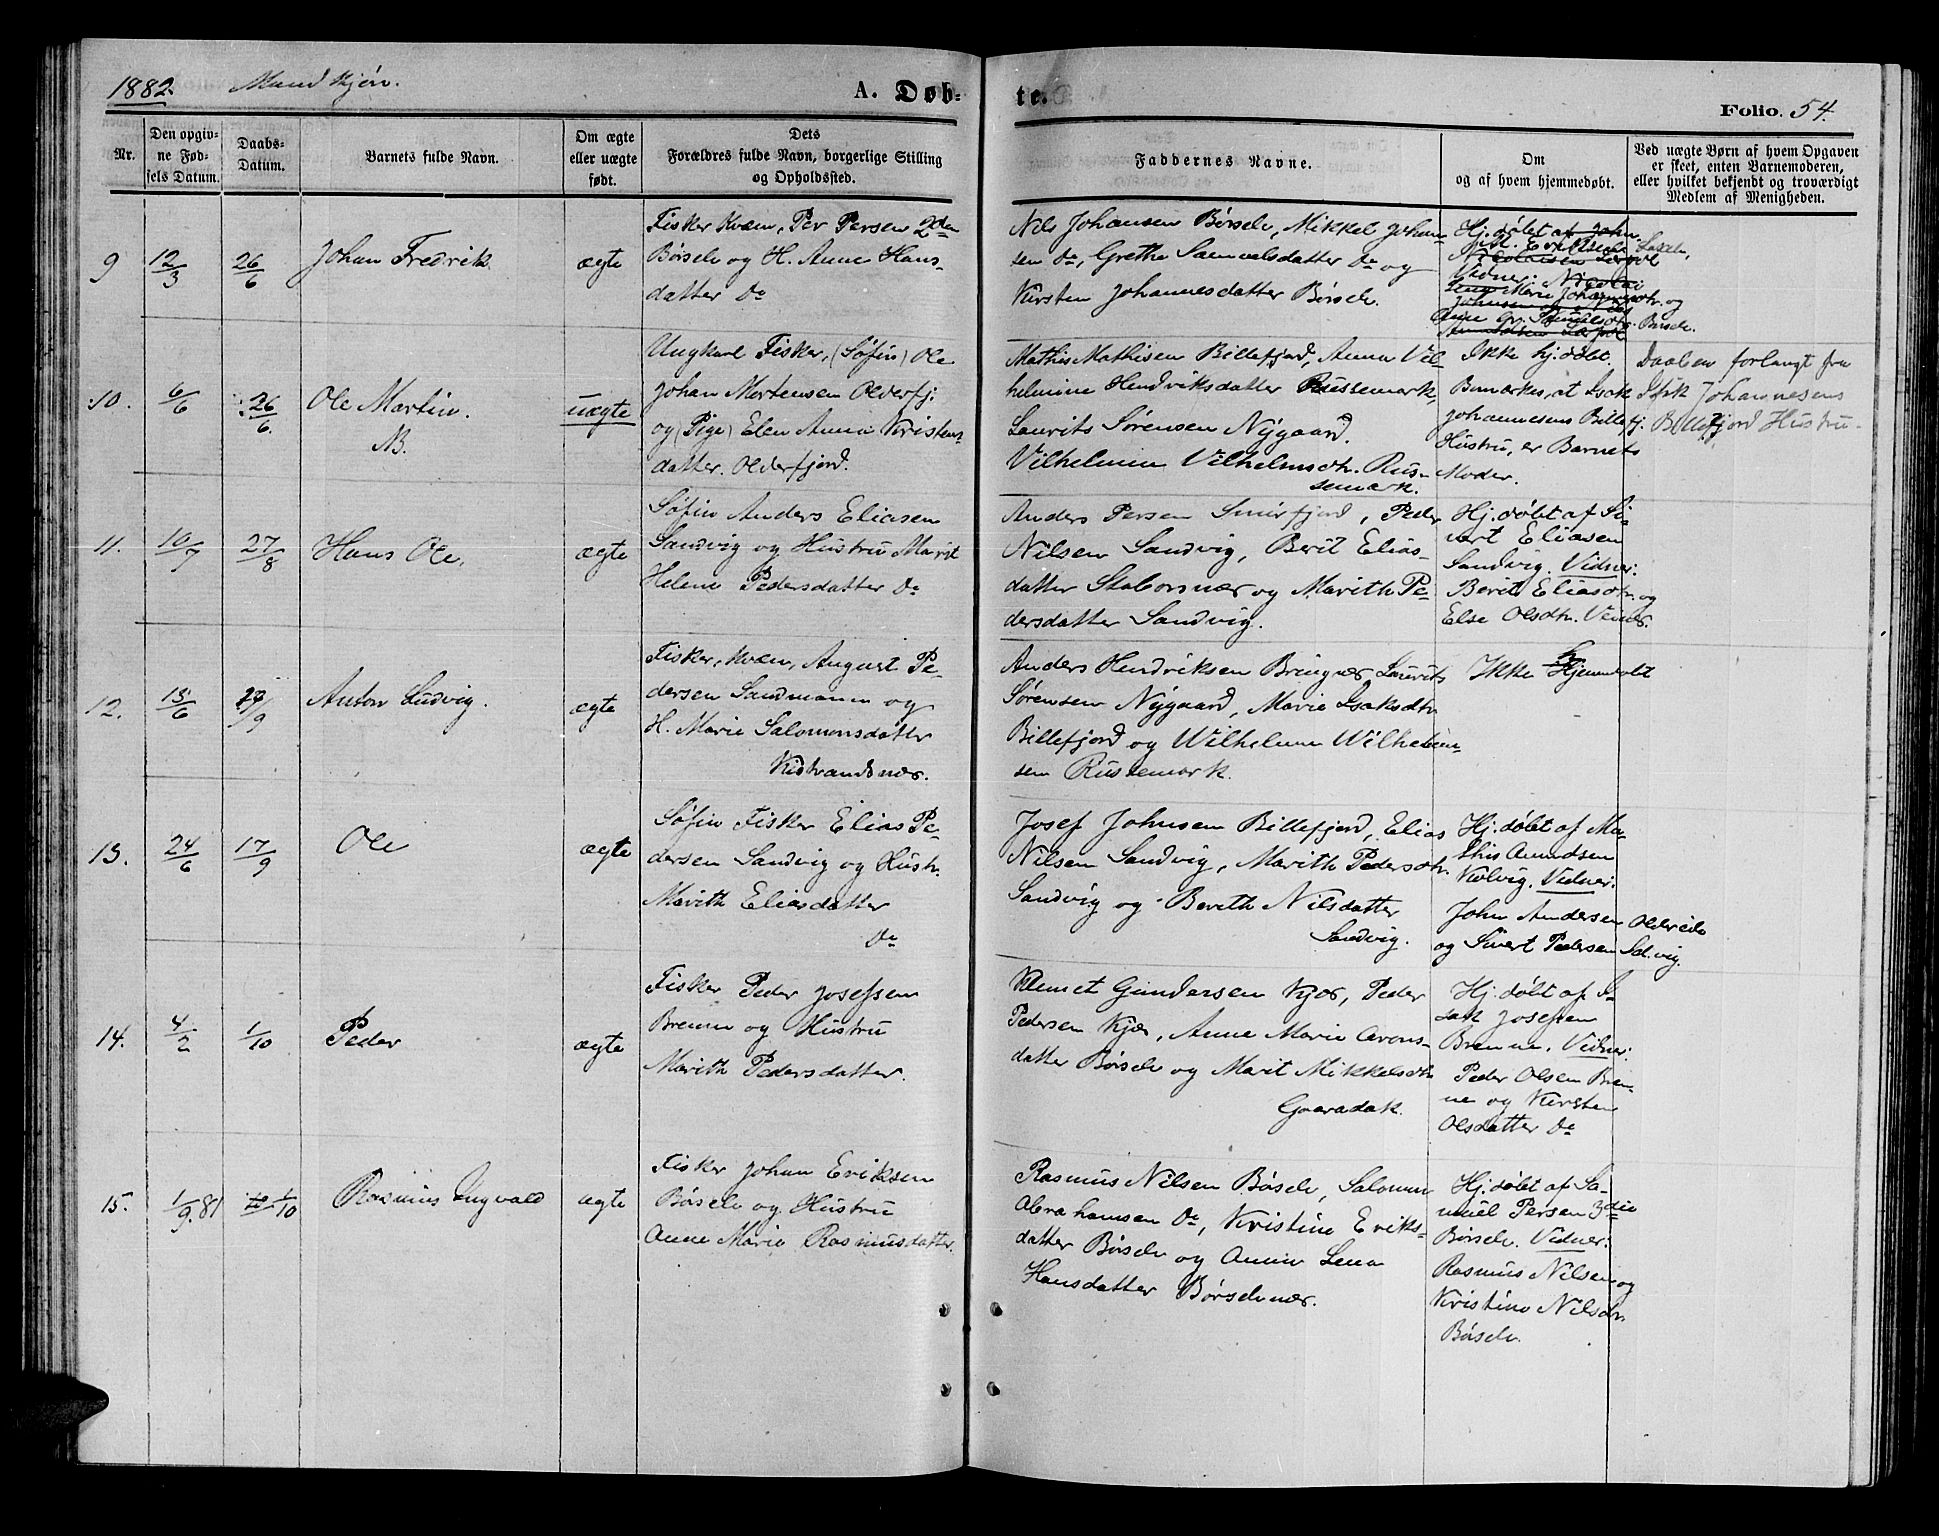 1882. Mandkjøn. A. Døb- te. Folio. 54.
Nr.
Den opgiv-
ne Fød-
sels Datum.
Daabs-
Datum.
Barnets fulde Navn.
Om ægte
eller uægte
født.
Dets
Forældres fulde Navn, borgerlige Stilling
og Opholdssted.
Faddernes Navne.
Om
og af hvem hjemmedøbt.
Ved uægte Børn af hvem Opgaven
er skeet, enten Barnemoderen,
eller hvilket bekjendt og troværdigt
Medlem af Menigheden.
9
12/3
26/6
Johan Fredrik
ægte
Fisker Kvæn, Per Persen 2den
Børselv og H. Anne Hans-
datter Do
Nils Johansen Børselv, Mikkel Johan-
sen Do, Grethe Samuelsdatter Do og
Kirsten Johannesdatter Børselv.
Hj. døbt af John
Eriksen
Nicolaisen
Vidner: Nicolai
Marie
Johnsen og
Anne
Børselv.
10.
6/6
26/6.
Ole Martin.
NB.
uægte
Ungkarl Fisker, (Søfin) Ole
Johan Mortensen Olderfj.
og (Pige) Elen Anna Kristens-
datter. Olderfjord.
Mathis Mathisen Billefjord, Anna Vil-
helmine Hendriksdatter Russemark,
Laurits Sørensen Nygaard.
Vilhelmine Vilhelmsdtr. Rus-
semark.
Ikke hj. døbt.
Bemærkes, at Isak
Johannesens Billefj.
Hustru, er Barnets
Moder.
Daaben forlangt fra
Isak Johannesens
Billefjord Hustru.
11.
10/7
27/8
Hans Ole.
ægte
Søfin Anders Eliasen
Sandvig og Hustru Marit
Helene Pedersdatter Do
Anders Persen Smørfjord, Peder
Nilsen Sandvig, Berit Elias-
datter Staborsnær og Marith Pe-
dersdatter Sandvig.
Hj. døbt af Si-
vert Eliasen
Sandvig. Vidner:
Berit Eliasdtr. og
Else Olsdtr.
12.
15/6
27/9
Anton Ludvig.
ægte
Fisker, Kvæn, August Pe-
dersen Sandmann og
H. Marie Salomonsdatter
Kistrandsnær.
Anders Hendriksen Bringnær, Laurits
Sørensen Nygaard, Marie Isaksdtr
Billefjord og Wilhelmine Wilhelm-
sen Russemark.
Ikke Hjemmedøbt
13.
24/6
17/9
Ole
ægte
Søfin Fisker Elias Pe-
dersen Sandvig og Hustr.
Marith Eliasdatter
Do
Josef Johnsen Billefjord, Elias
Nilsen Sandvig, Marith Pedersdtr.
Sandvig og Berith Nilsdatter
Sandvig.
Hj. døbt af Ma-
this Amundsen
Kolvig. Vidner:
John Andersen Oldereide
og Sivert Pedersen Sdvig.
14.
4/2
1/10
Peder
ægte
Fisker Peder Josefsen
Brenne og Hustru
Marith Pedersdatter.
Klemet Gundersen Kjæs, Peder
Pedersen Kjæs, Anne Marie Arons-
datter Børselv og Marit Mikkelsdtr
Gaaradak.
Hj. døbt af I-
sak Josefsen
Brenne. Vidner:
Peder Olsen Bren-
ne og Kirsten
Olsdatter Do
15.
1/9. 81
1/10
Rasmus Ingvald
ægte
Fisker Johan Eriksen
Børselv og Hustru
Anne Marie Rasmusdatter.
Rasmus Nilsen Børselv, Salomon
Abrahamsen Do, Kristine Eriks-
datter Børselv og Anne Lena
Hansdatter Børselvnær.
Hj. døbt af Sa-
muel Persen 3die
Børselv. Vidner:
Rasmus Nilsen og
Kristine Nilsdtr
Børselv.